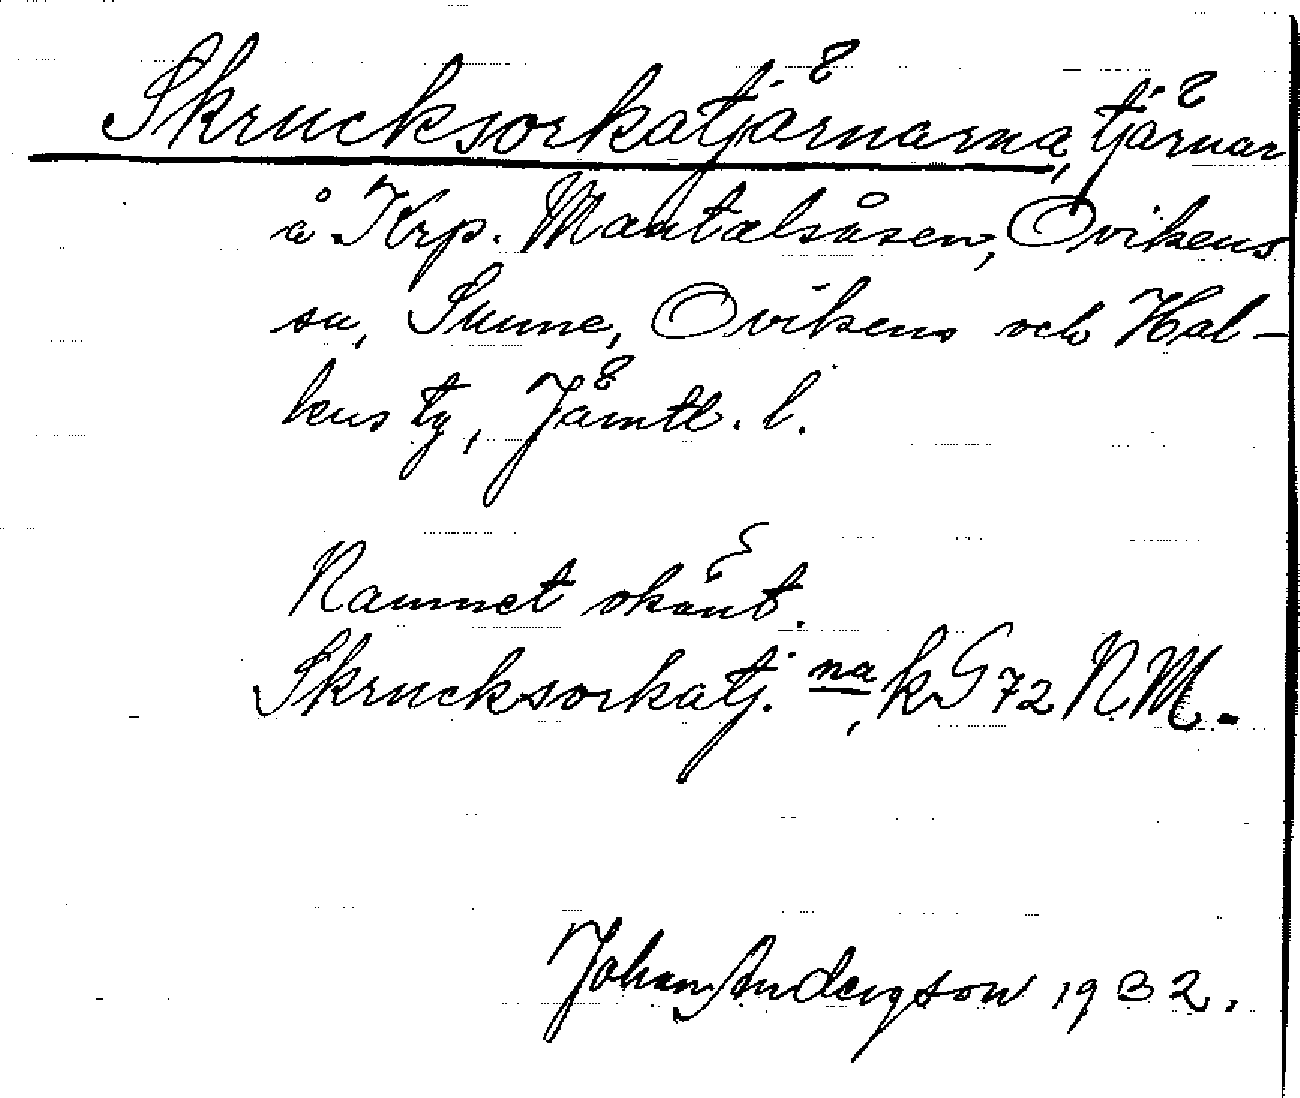 Skrucksorkatjärnarna, tjärnar
å Krp. Mantalsåsen, Ovikens
sn, Sunne, Ovikens och Hal-
lens tg, Jämtl. l.
Namnet okänt.
Skrucksorkatj. na, kG 72 NM.
Johan Anderson 1932.